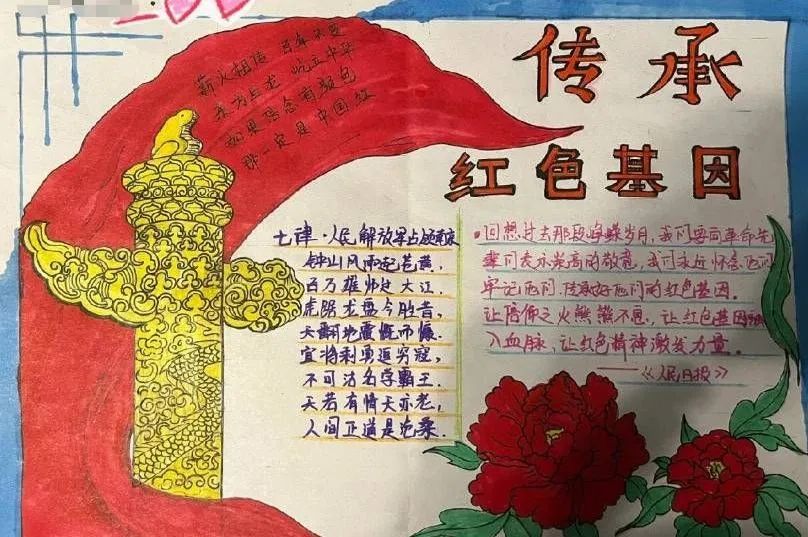 传承
红色基因
薪火相传 百年不熄
东方巨龙 屹立中华
如果信念有颜色
那一定是中国红
七律·人民解放军占领南京
钟山风雨起苍黄,
百万雄师过大江.
虎踞龙盘今胜昔,
天翻地覆慨而慷.
宜将剩勇追穷寇,
不可沽名学霸王.
天若有情天亦老,
人间正道是沧桑.
·回想过去那段峥嵘岁月,我们要向革命先
辈们表示崇高的敬意,我们永远怀念他们
牢记他们,传承好他们的红色基因.
让信仰之火熊熊不息,让红色基因融
入血脉,让红色精神激发力量.
——《人民日报》